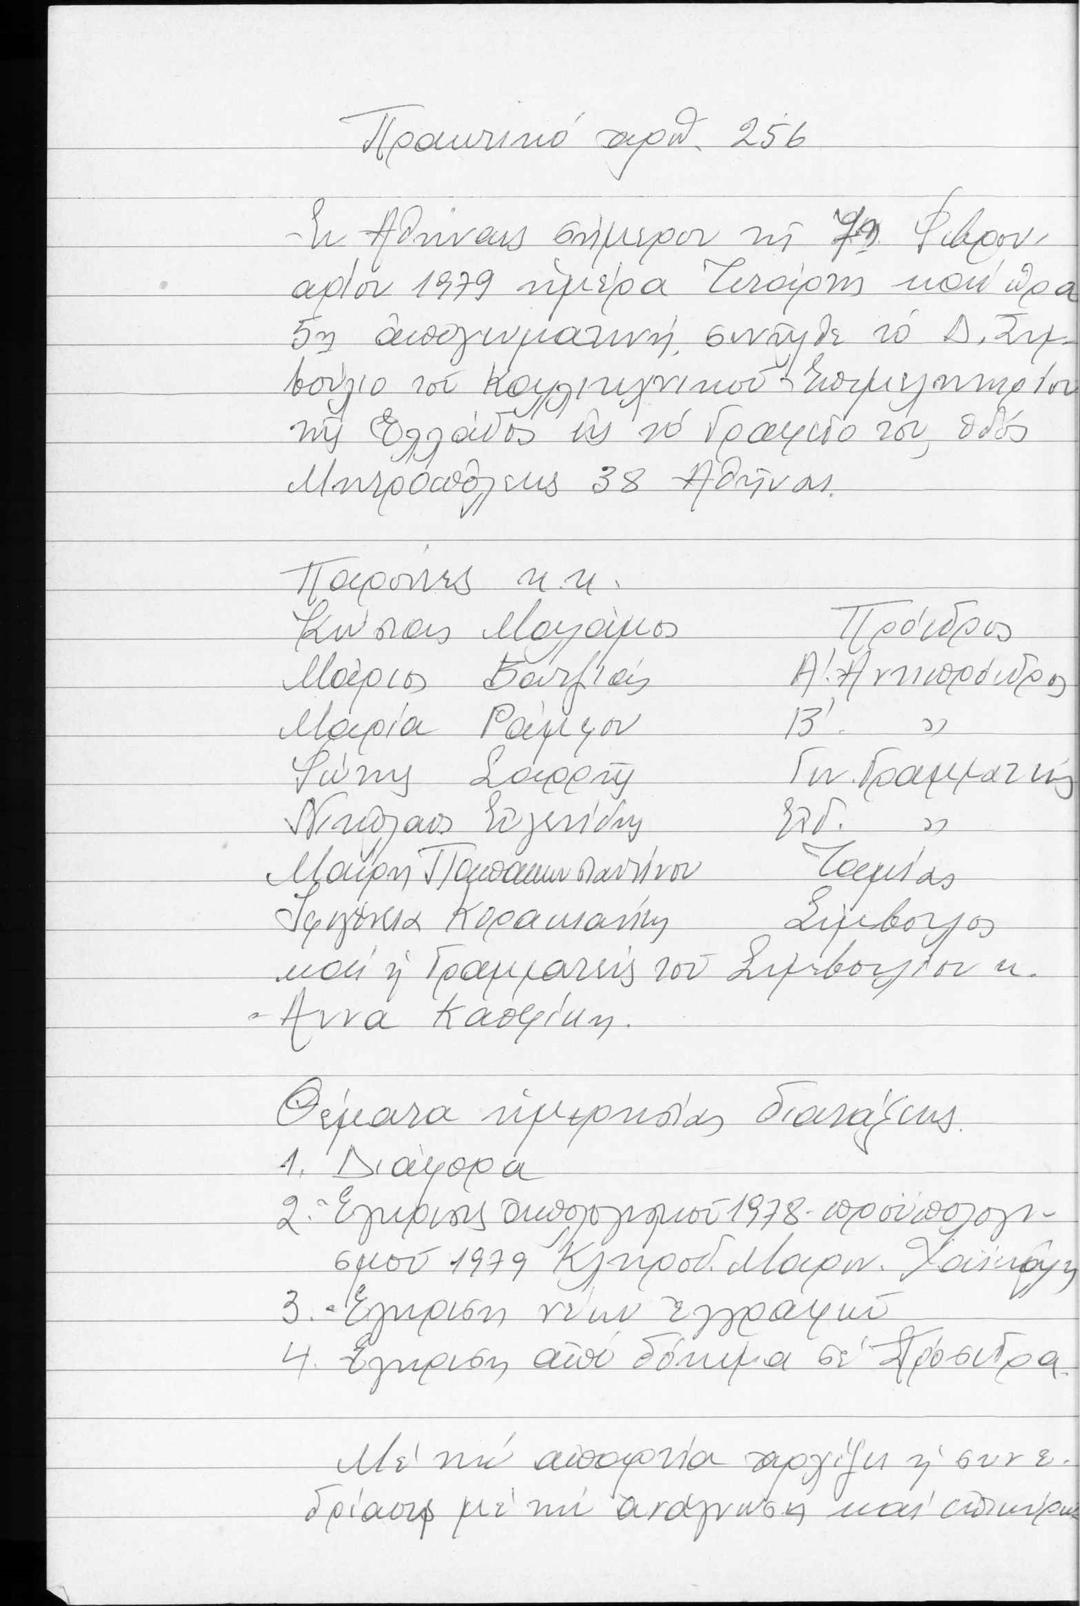 Πρακτικό ἀριθ. 256
Ἐν Ἀθήναις σήμερον τῇ 7ῃ Φεβρου-
αρίου 1979 ἡμέρα Τετάρτη καί ὥρα
5η ἀπογευματινή, συνῆλθε τό Δ. Συμ-
βούλιο τοῦ Καλλιτεχνικοῦ Ἐπιμελητηρίου
τῆς Ἑλλάδος εἰς τό Γραφεῖο του, ὁδός
Μητροπόλεως 38 Ἀθήνας.
Παρόντες κ.κ.
Κώστας Μαλάμος Πρόεδρος
Μάριος Βατζιάς Α! Ἀντιπρόεδρος
Μαρία Ράμφου Β! "
Φώτης Σαρρῆς Γεν. Γραμματεύς
Νικόλαος Εὐγενίδης Εἰδ. "
Μαίρη Παπακωνσταντίνου Ταμίας
Ἰφιγένεια Καρακιανίτη Σύμβουλος
καί ἡ Γραμματεύς τοῦ Συμβουλίου κ.
Ἄννα Καψάκη.
Θέματα ἡμερησίας διατάξεως.
1. Διάφορα
2. Ἔγκρισις ἀπολογισμοῦ 1978 - προϋπολογι-
σμοῦ 1979 Κληροδ. Μαριν.
3. Ἔγκριση νέων ἐγγραφῶν
4. Ἔγκριση ἀπό δόκιμα σέ Πρόσεδρα.
Μέ τήν ἀπαρτία ἀρχίζει ἡ συνε-
δρίασις μέ τήν ἀνάγνωση καί ἐπικύρωση